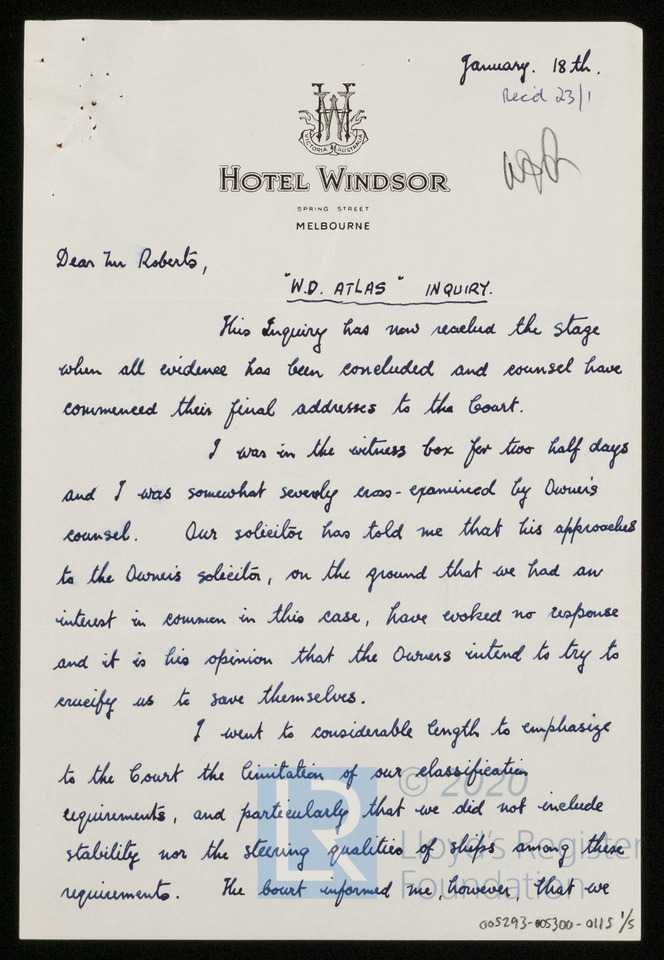 January. 18th.
Rec'd 23/1
VICTORIA AUSTRALIA
HOTEL WINDSOR
SPRING STREET
MELBOURNE
Dear Mr Roberts,
"W.D. ATLAS" INQUIRY.
This Inquiry has now reached the stage
when all evidence has been concluded and counsel have
commenced their final addresses to the Court.
I was in the witness box for two half days
and I was somewhat severely cross-examined by Owner's
counsel. Our solicitor has told me that his approaches
to the Owner's solicitor, on the ground that we had an
interest in common in this case, have evoked no response
and it is his opinion that the Owners intend to try to
crucify us to save themselves.
I went to considerable length to emphasize
to the Court the limitation of our classification
requirements, and particularly that we did not include
stability nor the steering qualities of ships among these
requirements. The Court informed me, however, that we
LR © 2020
Lloyd's Register
Foundation
005293-005300-0115 1/5